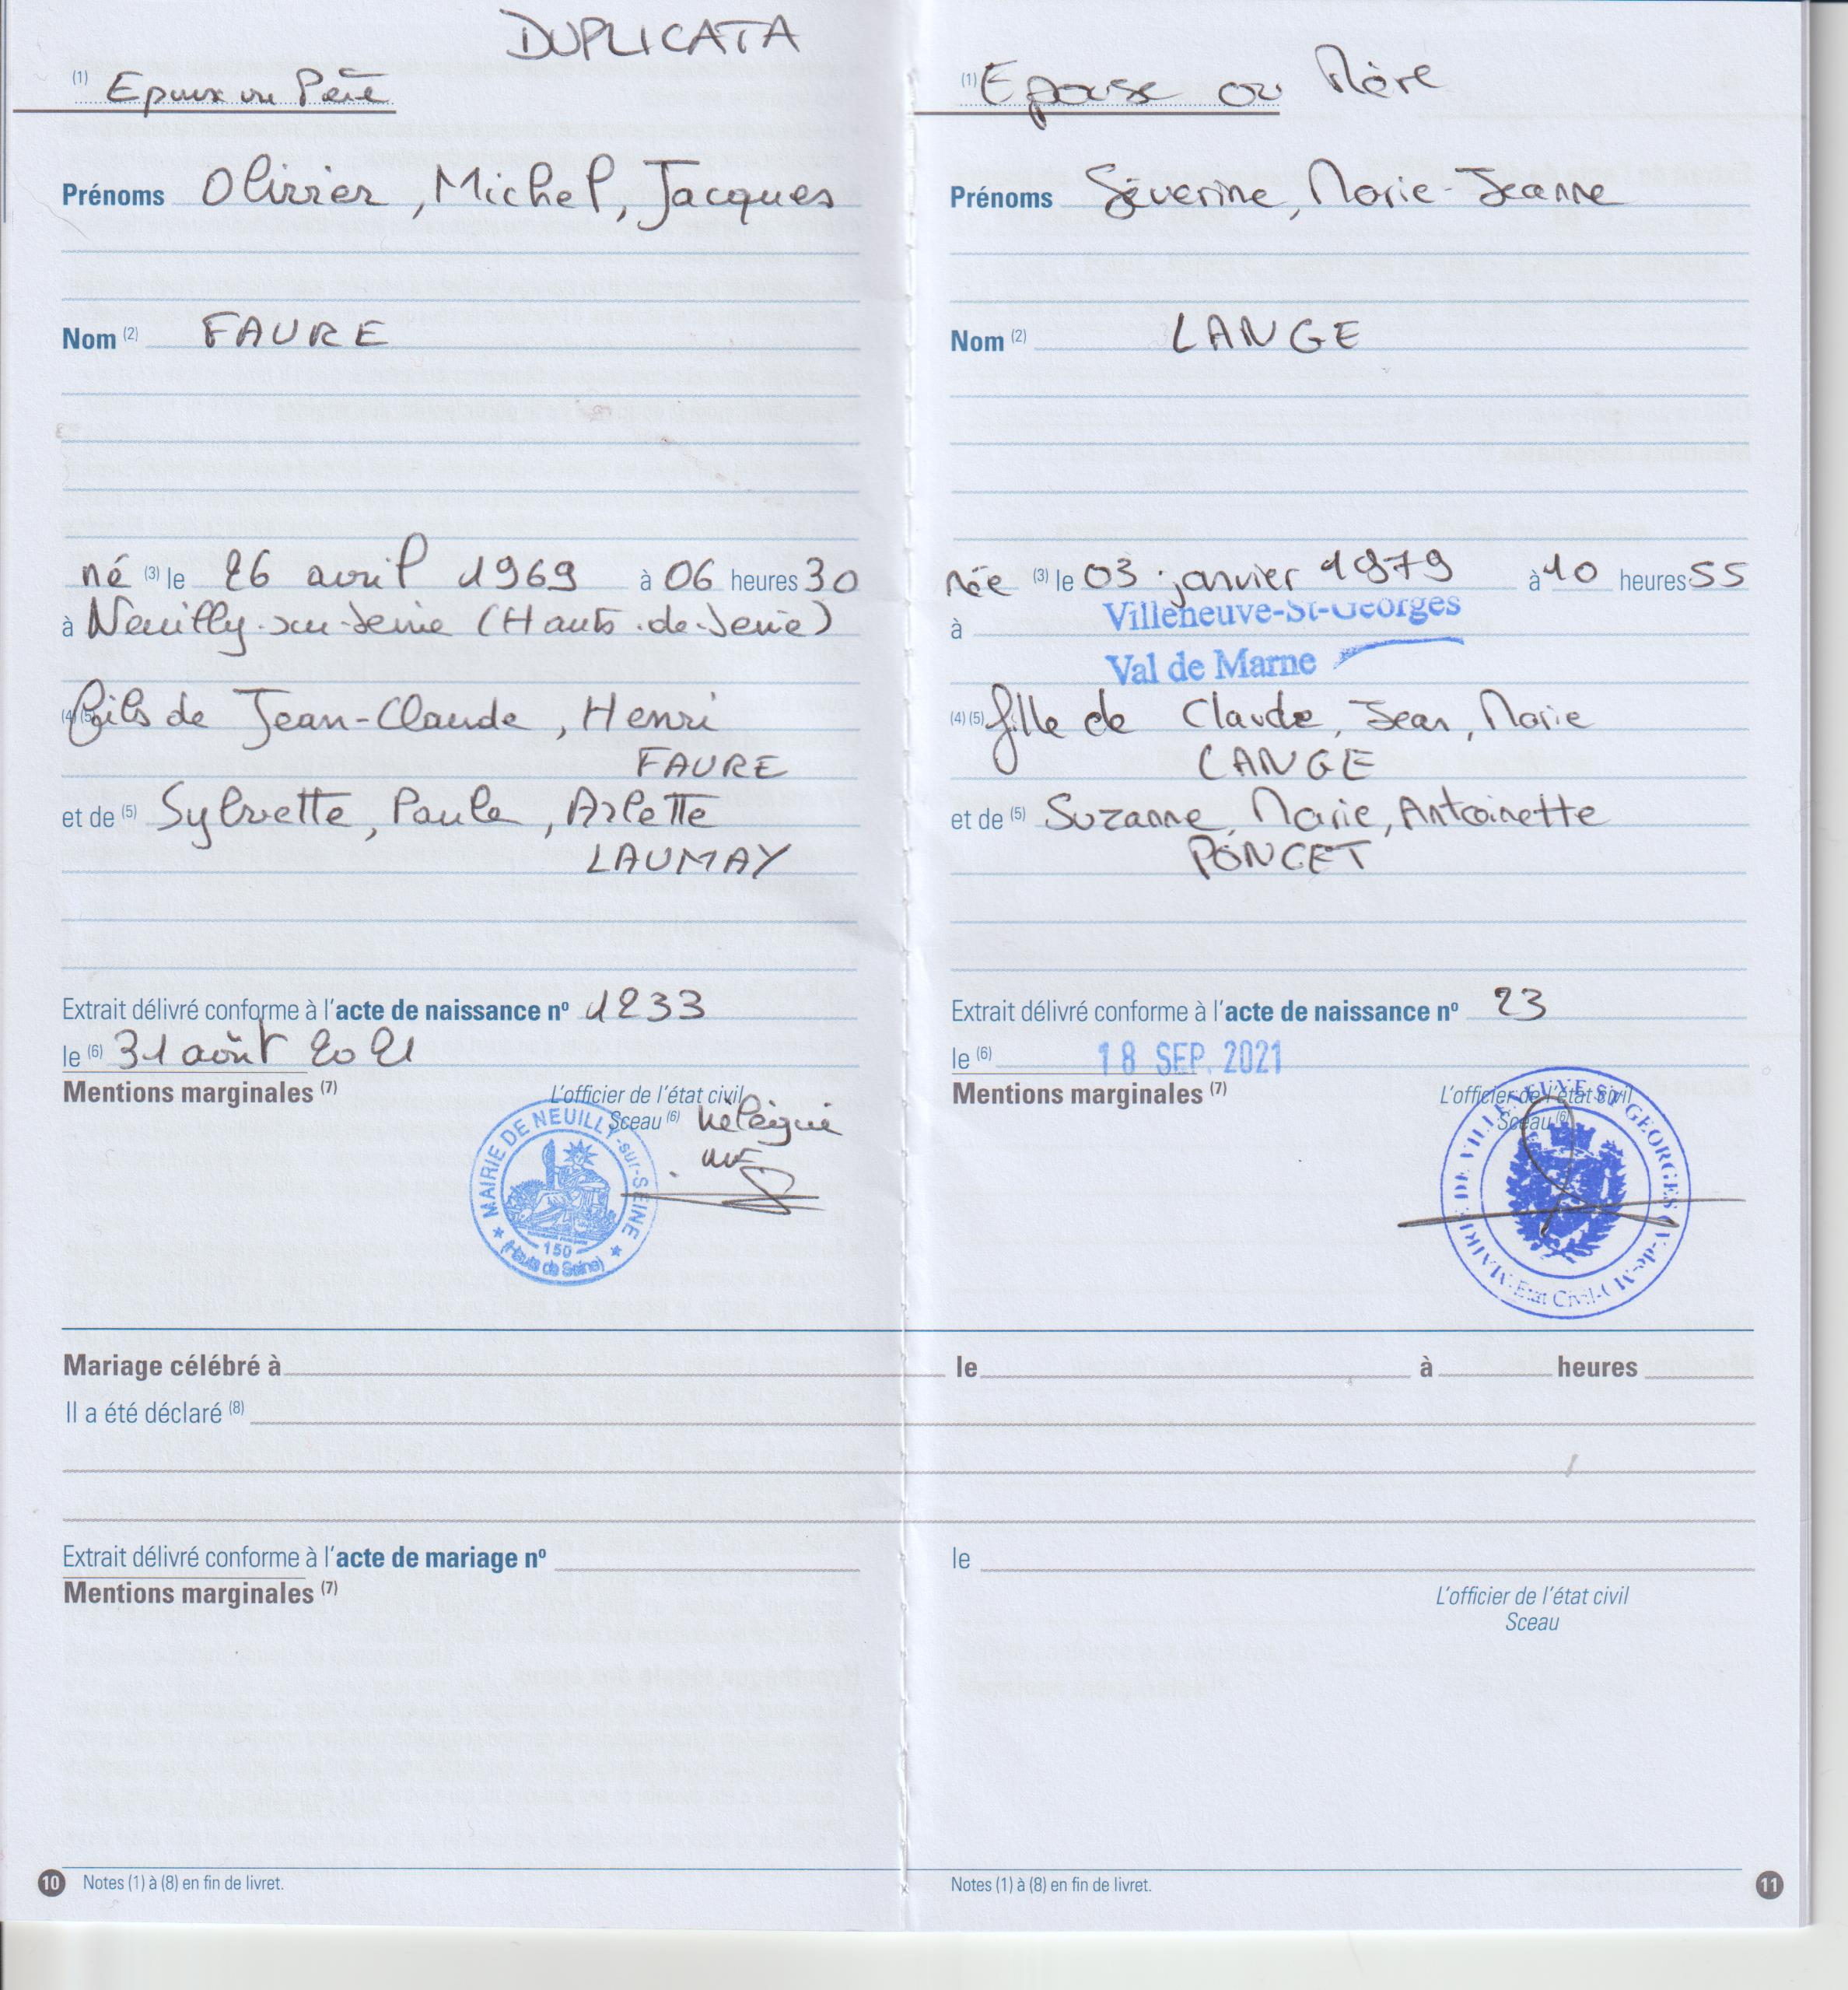 DUPLICATA
(1) Epoux ou Père
Prénoms Olivier, Michel, Jacques
Nom (2) FAURE
né (3) le 26 avril 1969 à 06 heures 30
à Neuilly-sur-Seine (Hauts-de-Seine)
(4) (5) fils de Jean-Claude, Henri
FAURE
et de (5) Sylvette, Paule, Arlette
LAUMAY
Extrait délivré conforme à l'acte de naissance nº 1233
le (6) 31 août 2021
Mentions marginales (7)
L'officier de l'état civil
Sceau (6)
MAIRIE DE NEUILLY-sur-SEINE
150
(Hauts de Seine)
(1) Epouse ou Mère
Prénoms Séverine, Marie-Jeanne
Nom (2) LANGE
née (3) le 03 janvier 1979 à 10 heures 55
à Villeneuve-St-Georges
Val de Marne
(4) (5) fille de Claude, Jean, Marie
LANGE
et de (5) Suzanne, Marie, Antoinette
PONCET
Extrait délivré conforme à l'acte de naissance nº 23
le (6) 18 SEP. 2021
Mentions marginales (7)
L'officier de l'état civil
Sceau (6)
MAIRIE DE VILLENEUVE ST GEORGES (V-de-M)
Etat Civil
Mariage célébré à le à heures
Il a été déclaré (8)
Extrait délivré conforme à l'acte de mariage nº le
Mentions marginales (7)
L'officier de l'état civil
Sceau
10 Notes (1) à (8) en fin de livret.
Notes (1) à (8) en fin de livret. 11